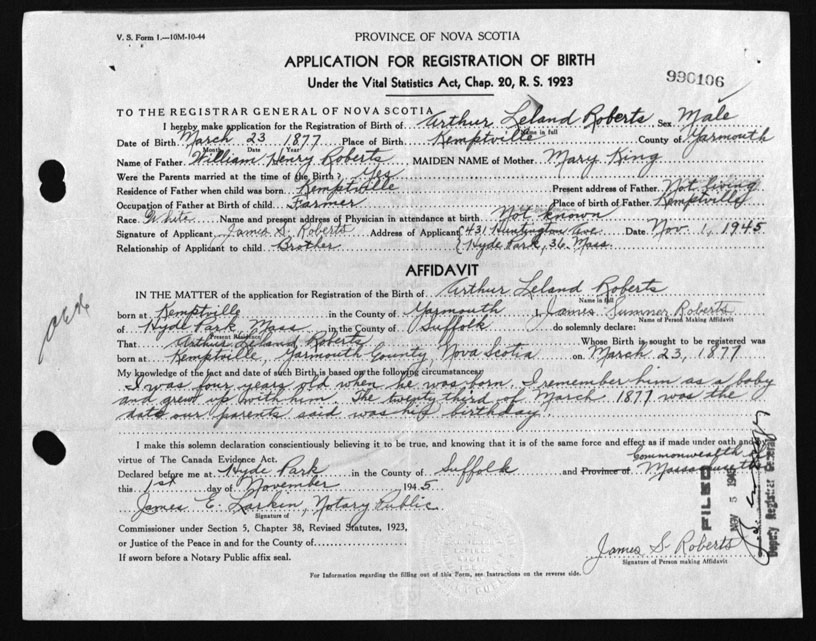 V. S. Form 1.—10M-10-44
PROVINCE OF NOVA SCOTIA
APPLICATION FOR REGISTRATION OF BIRTH
Under the Vital Statistics Act, Chap. 20, R. S. 1923
990106
TO THE REGISTRAR GENERAL OF NOVA SCOTIA
I hereby make application for the Registration of Birth of Arthur Leland Roberts Sex Male
Name in full
Date of Birth March 23 1877 Place of Birth Kemptville County of Yarmouth
Month Date Year
Name of Father William Henry Roberts MAIDEN NAME of Mother Mary King
Were the Parents married at the time of the Birth? Yes
Residence of Father when child was born Kemptville Present address of Father Not living
Occupation of Father at Birth of child Farmer Place of birth of Father Kemptville
Race White Name and present address of Physician in attendance at birth Not known
Signature of Applicant James S. Roberts Address of Applicant { 431 Huntington Ave Date Nov. 1, 1945
Relationship of Applicant to child Brother { Hyde Park, 36, Mass.
AFFIDAVIT
IN THE MATTER of the application for Registration of the Birth of Arthur Leland Roberts
Name in full
born at Kemptville in the County of Yarmouth I, James Sumner Roberts
Name of Person Making Affidavit
of Hyde Park, Mass. in the County of Suffolk do solemnly declare:
Present Residence
That Arthur Leland Roberts Whose Birth is sought to be registered was
born at Kemptville, Yarmouth County, Nova Scotia on March 23, 1877
My knowledge of the fact and date of such Birth is based on the following circumstances:
I was four years old when he was born. I remember him as a baby
and grew up with him. The twenty third of March 1877 was the
date our parents said was his birthday.
I make this solemn declaration conscientiously believing it to be true, and knowing that it is of the same force and effect as if made under oath and by
virtue of The Canada Evidence Act.
Commonwealth
Declared before me at Hyde Park in the County of Suffolk and Province of Massachusetts
this 1st day of November 1945
James E. Larkin, Notary Public
Signature of
Commissioner under Section 5, Chapter 38, Revised Statutes, 1923,
or Justice of the Peace in and for the County of
If sworn before a Notary Public affix seal.
James S. Roberts
Signature of Person making Affidavit
For Information regarding the filling out of this Form, see Instructions on the reverse side.
FILED
NOV 5 1945
Deputy Registrar General